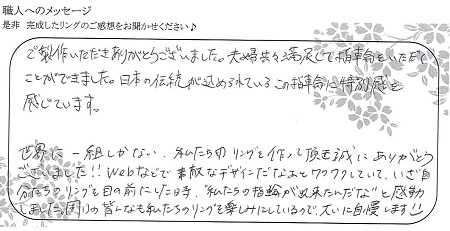 職人へのメッセージ
是非 完成したリングのご感想をお聞かせください♪
ご製作いただきありがとうございました。夫婦共々満足して指輪をいただく
ことができました。日本の伝統が込められているこの指輪に特別感を
感じています。
世界に一組しかない、私たちのリングを作って頂き誠にありがとう
ございました!! Webなどで素敵なデザインだなぁとワクワクしていて、いざ自
分たちのリングを目の前にした時、"私たちの指輪が出来たんだな"と感動
しました。周りの皆んなも私たちのリングを楽しみにしているので、大いに自慢します!!